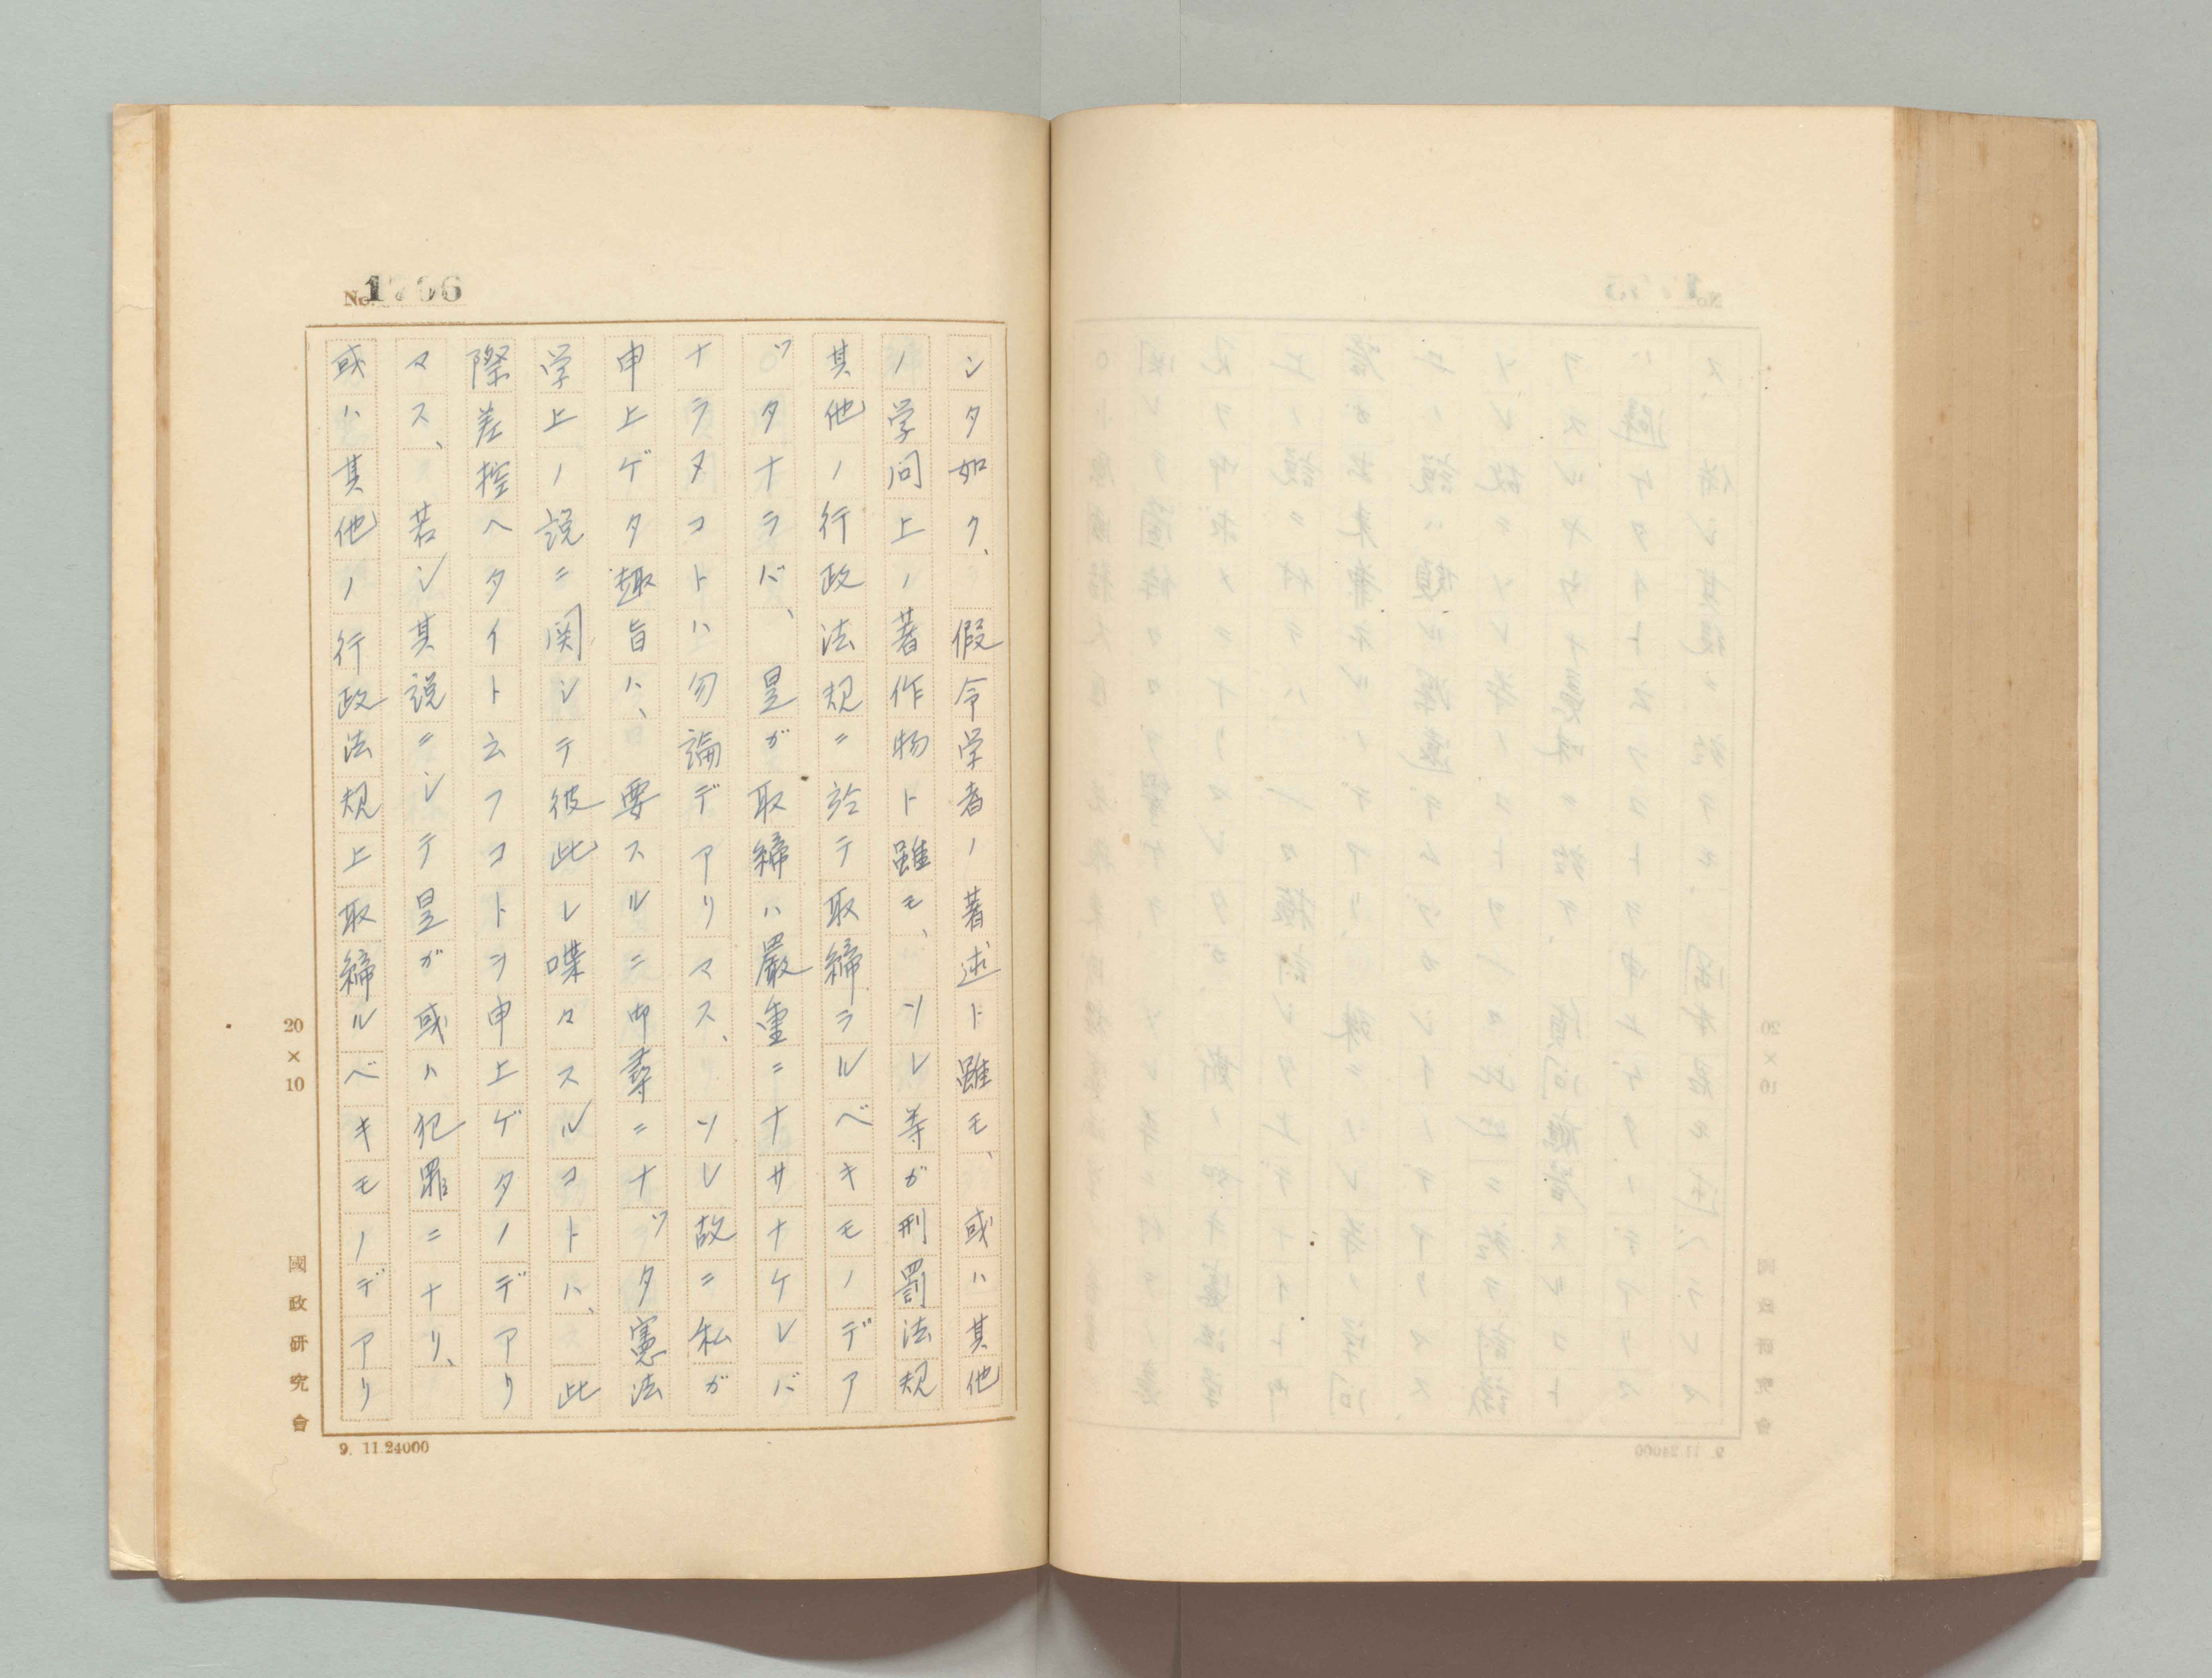 No. 1706
シタ如ク、假令学者ノ著述ト雖モ、或ハ其他
ノ学問上ノ著作物ト雖モ、ソレ等ガ刑罰法規
其他ノ行政法規ニ於テ取締ラルベキモノデア
ツタナラバ、是ガ取締ハ嚴重ニナサナケレバ
ナラヌコトハ勿論デアリマス、ソレ故ニ私ガ
申上ゲタ趣旨ハ、要スルニ御尋ニナツタ憲法
学上ノ説ニ関シテ彼此レ喋々スルコトハ、此
際差控ヘタイト云フコトヲ申上ゲタノデアリ
マス、若シ其説ニシテ是ガ或ハ犯罪ニナリ、
或ハ其他ノ行政法規上取締ルベキモノデアリ
20×10
國政研究會
9. 11.24000